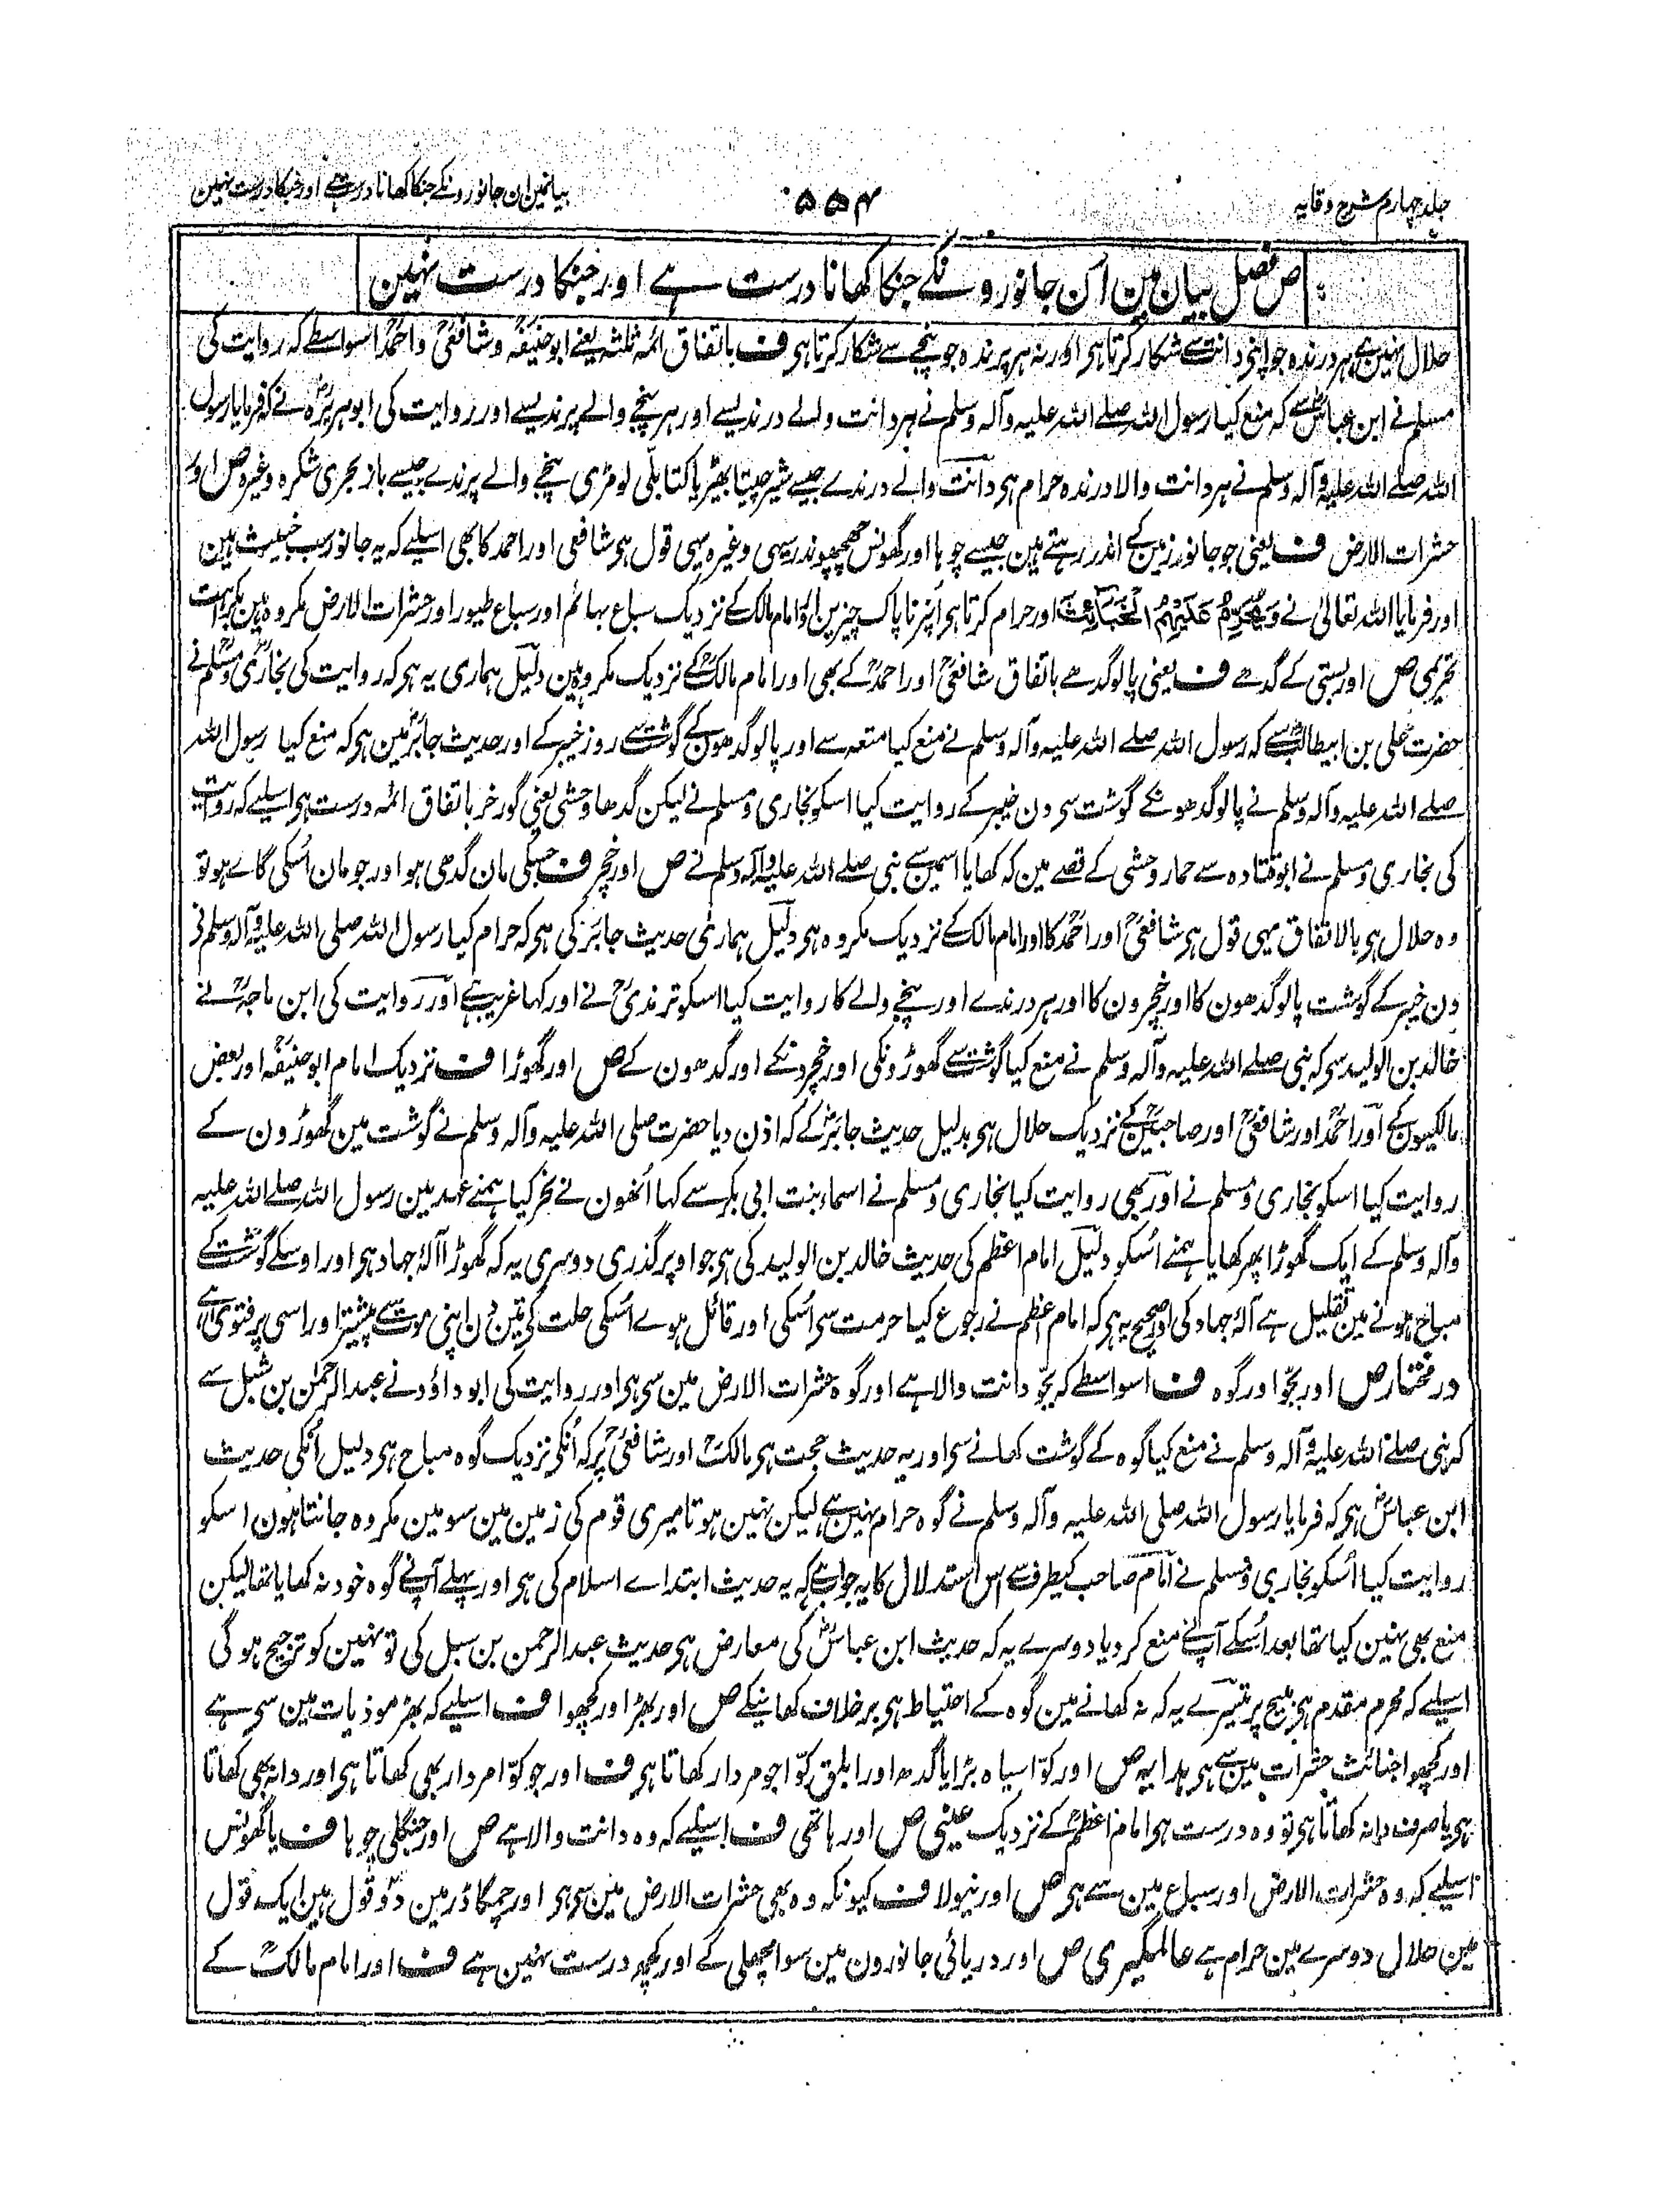 جلد چہارم شرح وقایہ
۵۵۴
بیانمین ان جانورونکے جنکا کھانا درست ہے اور جنکا درست نہین
ص فصل بیان مین اُن جانورونکے جنکا کھانا درست ہے اور جنکا درست نہین
حلال نہین ہے ہر درندہ جو اپنی دانت سے شکار کرتا ہی اور نہ ہر پرندہ جو پنجے سے شکار کرتا ہی ف باتفاق ائمہ ثلثہ یعنے ابو حنیفہؒ و شافعیؒ و احمدؒ اسواسطے کہ روایت کی
مسلم نے ابن عباسؓ سے کہ منع کیا رسول اللہ صلے اللہ علیہ وآلہ وسلم نے ہر دانت والے درندیسے اور ہر پنجے والے پرندیسے اور روایت کی ابو ہریرہؓ نے کہ فرمایا رسول
اللہ صلے اللہ علیہ وآلہ وسلم نے ہر دانت والا درندہ حرام ہی دانت والے درندے جیسے شیر چیتا بھیڑیا کتا بلّی لومڑی پنجے والے پرندے جیسے باز بحری شکرہ وغیرہ ص اور
حشرات الارض ف یعنی جو جانور زمین کے اندر رہتے ہین جیسے چوہا اور گھونس چھچھوندر سیہی وغیرہ یہی قول ہی شافعی اور احمد کا بھی اسلیے کہ یہ جانور سب خبیث ہین
اور فرمایا اللہ تعالیٰ نے وَیُحَرِّمُ عَلَیْہِمُ الْخَبَائِثَ اور حرام کرتا ہی اُنپر ناپاک چیزین اور امام مالک کے نزدیک سباع بہائم اور سباع طیور اور حشرات الارض مکروہ ہین بکراہت
تحریمی ص اور بستی کے گدھے ف یعنی پالو گدھے باتفاق شافعیؒ اور احمدؒ کے بھی اور امام مالکؒ کے نزدیک مکروہ ہین دلیل ہماری یہ ہی کہ روایت کی بخاریؒ و مسلمؒ نے
حضرت علی بن ابیطالبؓ سے کہ رسول اللہ صلے اللہ علیہ وآلہ وسلم نے منع کیا متعہ سے اور پالو گدھون کے گوشت سے روز خیبر کے اور حدیث جابرؓ مین ہی کہ منع کیا رسول اللہ
صلے اللہ علیہ وآلہ وسلم نے پالو گدھونکے گوشت سی دن خیبر کے روایت کیا اسکو بخاری و مسلم نے لیکن گدھا وحشی یعنی گورخر باتفاق ائمہ درست ہی اسلیے کہ روایت
کی بخاری و مسلم نے ابو قتادہ سے حمار وحشی کے قصے مین کہ کھایا اسمین سے نبی صلے اللہ علیہ وآلہ وسلم نے ص اور خچر ف جسکی مان گدھی ہو اور جو مان اُسکی گاے ہو تو
وہ حلال ہی بالاتفاق یہی قول ہی شافعیؒ اور احمدؒ کا اور امام مالک کے نزدیک مکروہ ہی دلیل ہماری حدیث جابرؓ کی ہی کہ حرام کیا رسول اللہ صلی اللہ علیہ وآلہ وسلم نے
دن خیبر کے گوشت پالو گدھون کا اور خچرون کا اور ہر درندے اور پنجے والے کا روایت کیا اسکو ترمذیؒ نے اور کہا غریب ہے اور روایت کی ابن ماجہؒ نے
خالد بن الولید سی کہ نبی صلے اللہ علیہ وآلہ وسلم نے منع کیا گوشت سے گھوڑونکی اور خچرونکے اور گدھون کے ص اور گھوڑا ف نزدیک امام ابو حنیفہؒ اور بعض
مالکیون کے اور احمدؒ اور شافعیؒ اور صاحبینؒ کے نزدیک حلال ہی بدلیل حدیث جابرؓ کے کہ اذن دیا حضرت صلی اللہ علیہ وآلہ وسلم نے گوشت مین گھوڑون کے
روایت کیا اسکو بخاری و مسلم نے اور بھی روایت کیا بخاری و مسلم نے اسماء بنت ابی بکر سے کہا اُنھون نے نحر کیا ہمنے عہد مین رسول اللہ صلے اللہ علیہ
وآلہ وسلم کے ایک گھوڑا پھر کھایا ہمنے اُسکو دلیل امام اعظم کی حدیث خالد بن الولید کی ہی جو اوپر گذری دوسری یہ کہ گھوڑا آلۂ جہاد ہی اور اوسکے گوشت کے
مباح ہونے مین تقلیل ہے آلۂ جہاد کی اور صحیح یہ ہی کہ امام اعظم نے رجوع کیا حرمت سی اُسکی اور قائل ہوے اُسکی حلت کی تین دن اپنی موت سے پیشتر اور اسی پر فتویٰ ہے
در مختار ص اور بجّو اور گوہ ف اسواسطے کہ بجّو دانت والا ہے اور گوہ حشرات الارض مین سی ہی اور روایت کی ابو داؤد نے عبد الرحمٰن بن شبل سے
کہ نبی صلے اللہ علیہ وآلہ وسلم نے منع کیا گوہ کے گوشت کھانے سی اور یہ حدیث حجت ہی مالکؒ اور شافعیؒ پر کہ اُنکی نزدیک گوہ مباح ہی دلیل اُنکی حدیث
ابن عباسؓ ہی کہ فرمایا رسول اللہ صلی اللہ علیہ وآلہ وسلم نے گوہ حرام نہین ہے لیکن نہین ہوتا میری قوم کی زمین مین سو مین مکروہ جانتا ہون اسکو
روایت کیا اُسکو بخاری و مسلم نے امام صاحب کیطرف سے اس استدلال کا یہ جواب ہے کہ یہ حدیث ابتداے اسلام کی ہی اور پہلے آپنے گوہ خود نہ کھایا تھا لیکن
منع بھی نہین کیا تھا بعد اُسکے آپنے منع کر دیا دوسرے یہ کہ حدیث ابن عباسؓ کی معارض ہی حدیث عبد الرحمن بن سبل کی تو نہین کو ترجیح ہوگی
اسلیے کہ محرم مقدم ہی مبیح پر تیسرے یہ کہ نہ کھانے مین گوہ کے احتیاط ہی برخلاف کھانیکے ص اور بھڑ اور کچھوا ف اسلیے کہ بھڑ موذیات مین سی ہے
اور کچھوا خبائث حشرات مین سے ہی ہدایہ ص اور کوّا سیاہ بڑا یا گدھ اور ابلق کوّا جو مردار کھاتا ہی ف اور جو کوّا مردار بھی کھاتا ہی اور دانہ بھی کھاتا
ہی یا صرف دانہ کھاتا ہی تو وہ درست ہی امام اعظمؒ کے نزدیک عینی ص اور ہاتھی ف اسلیے کہ وہ دانت والا ہے ص اور جنگلی چوہا ف یا گھونس
اسلیے کہ وہ حشرات الارض اور سباع مین سے ہی ص اور نیولا ف کیونکہ وہ بھی حشرات الارض مین سی ہی اور چمگاڈر مین دو قول ہین ایک قول
مین حلال دوسرے مین حرام ہے عالمگیری ص اور دریائی جانورون مین سوا مچھلی کے اور کچھ درست نہین ہے ف اور امام مالکؒ کے